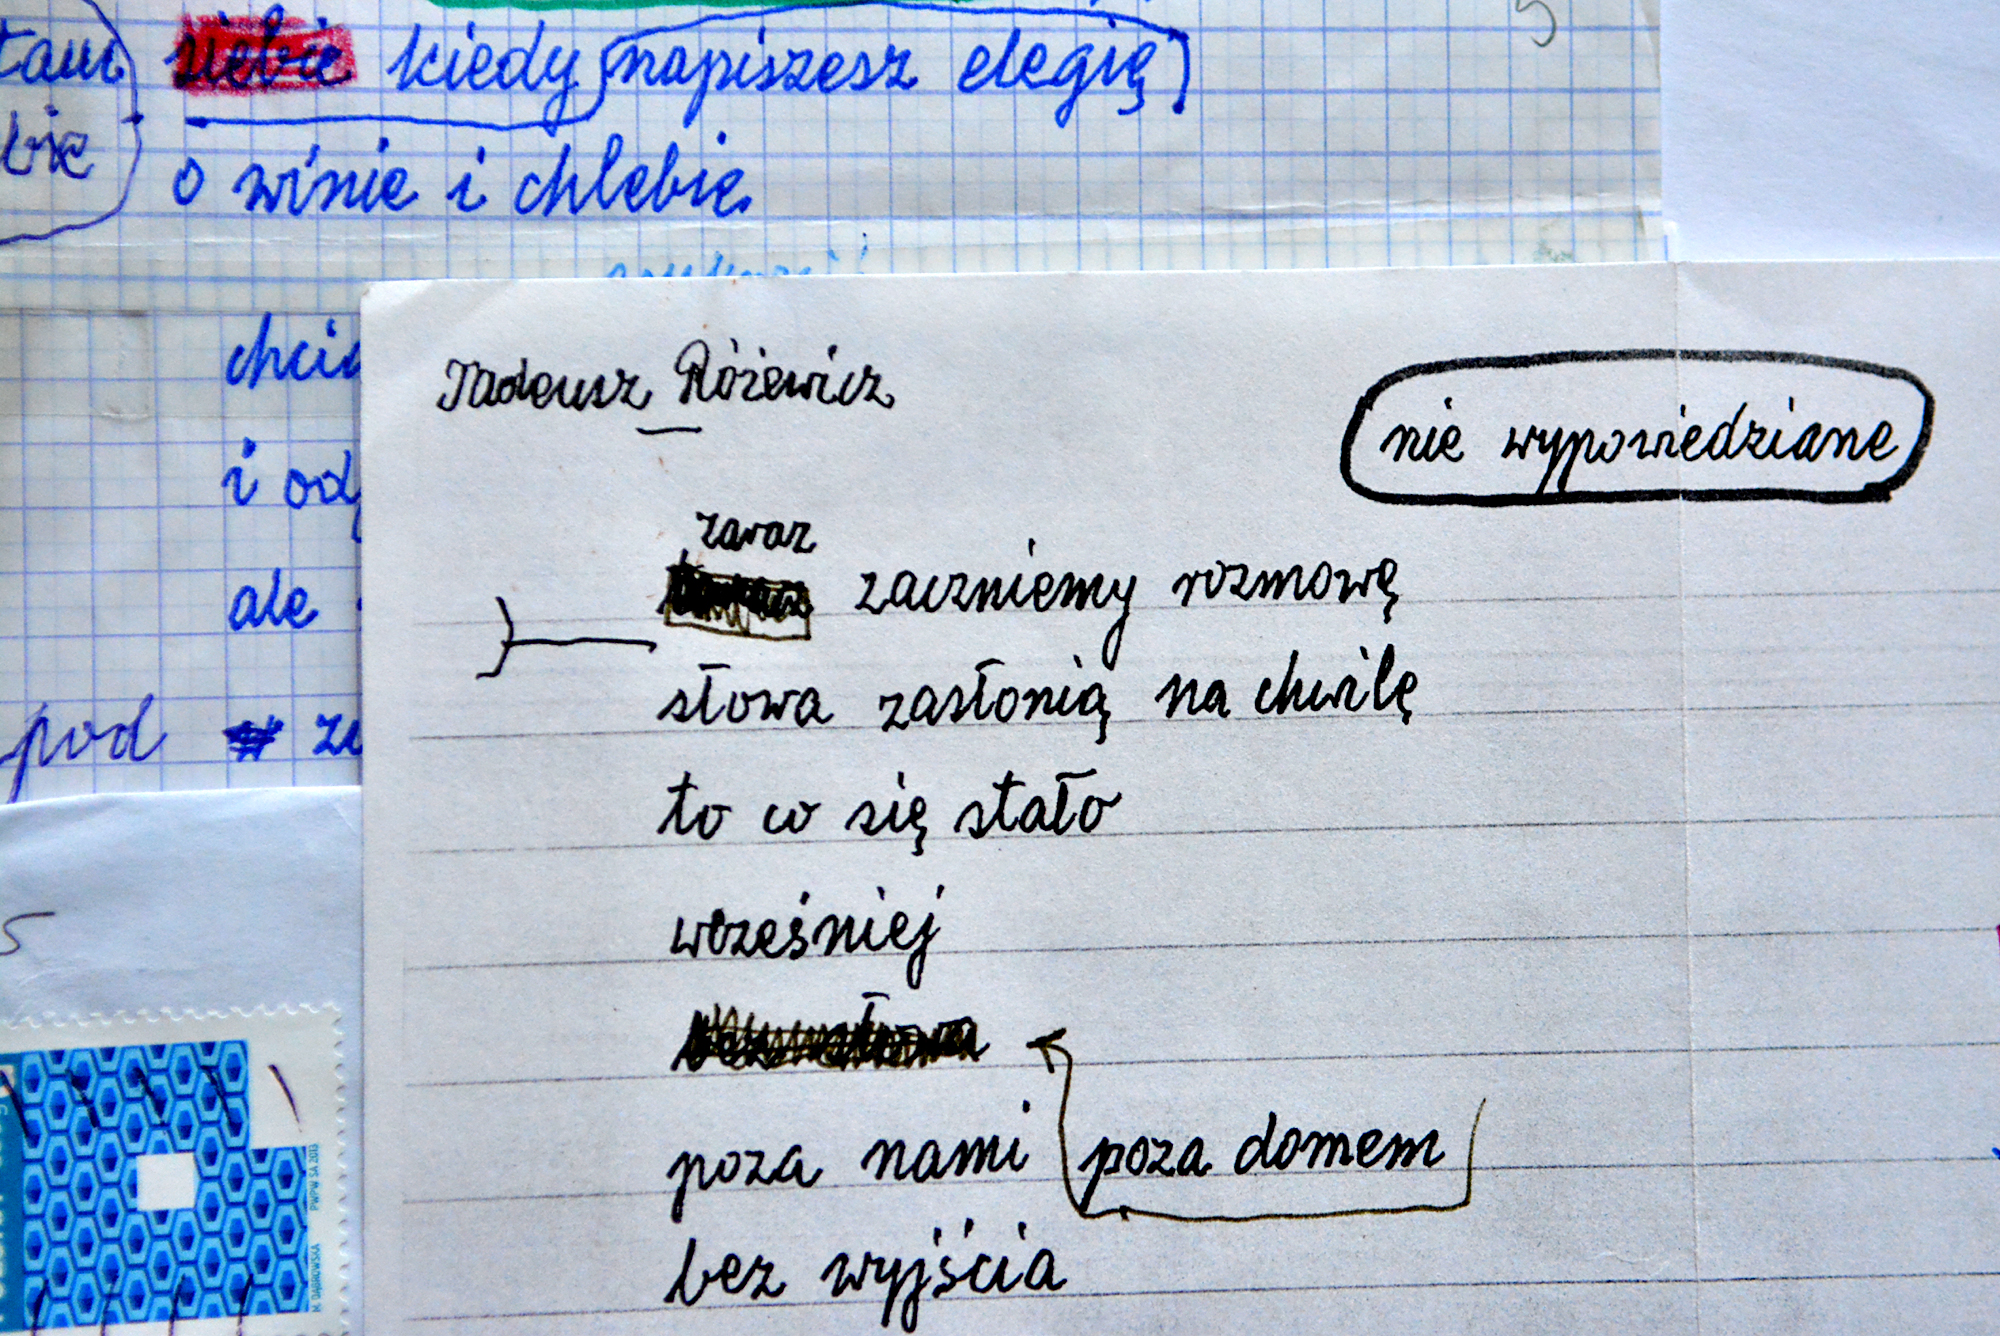 siebie kiedy napiszesz elegię
o winie i chlebie
ale
pod
Tadeusz Różewicz
nie wypowiedziane
zaraz
zaczniemy rozmowę
słowa zasłonią na chwilę
to co się stało
wcześniej
bez słowa
poza nami poza domem
bez wyjścia
PWPW SA 2013
M. DĄBROWSKA